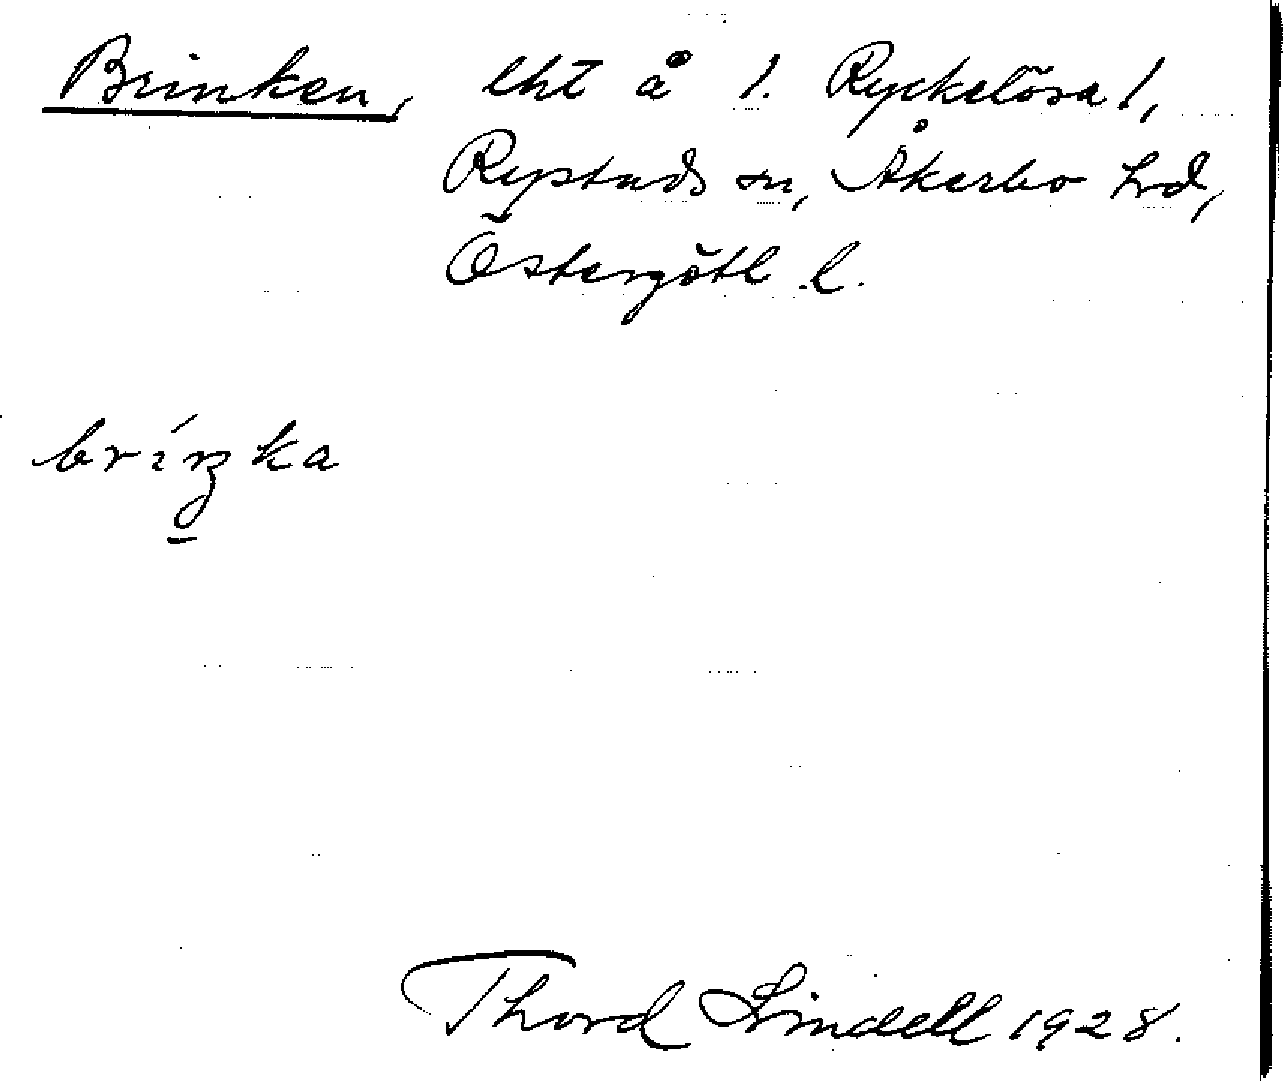 Brinken, lht å 1. Ryckelösa 1,
Rystads sn, Åkerbo hd,
Östergötl. l.
bríŋka
Thord Lindell 1928.